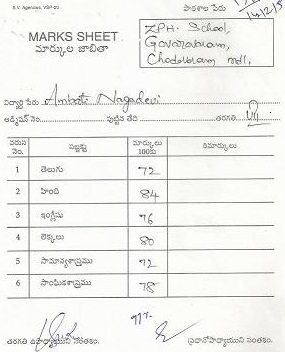 S.V. Agencies, VSP-20.
పాఠశాల పేరు
MARKS SHEET
మార్కుల జాబితా
ZPH. School,
Govavaram,
Chodavaram mdl.
విద్యార్థి పేరు Ambati Nagadevi
అడ్మిషన్ నెం. పుట్టిన తేది తరగతి VII
వరుస నెం. సబ్జక్టు మార్కులు 100కు రిమార్కులు
1 తెలుగు 72
2 హింది 84
3 ఇంగ్లీషు 76
4 లెక్కలు 80
5 సామాన్యశాస్త్రము 72
6 సాంఘికశాస్త్రము 78
77%
తరగతి ఉపాధ్యాయుని సంతకం. ప్రధానోపాధ్యాయుని సంతకం.